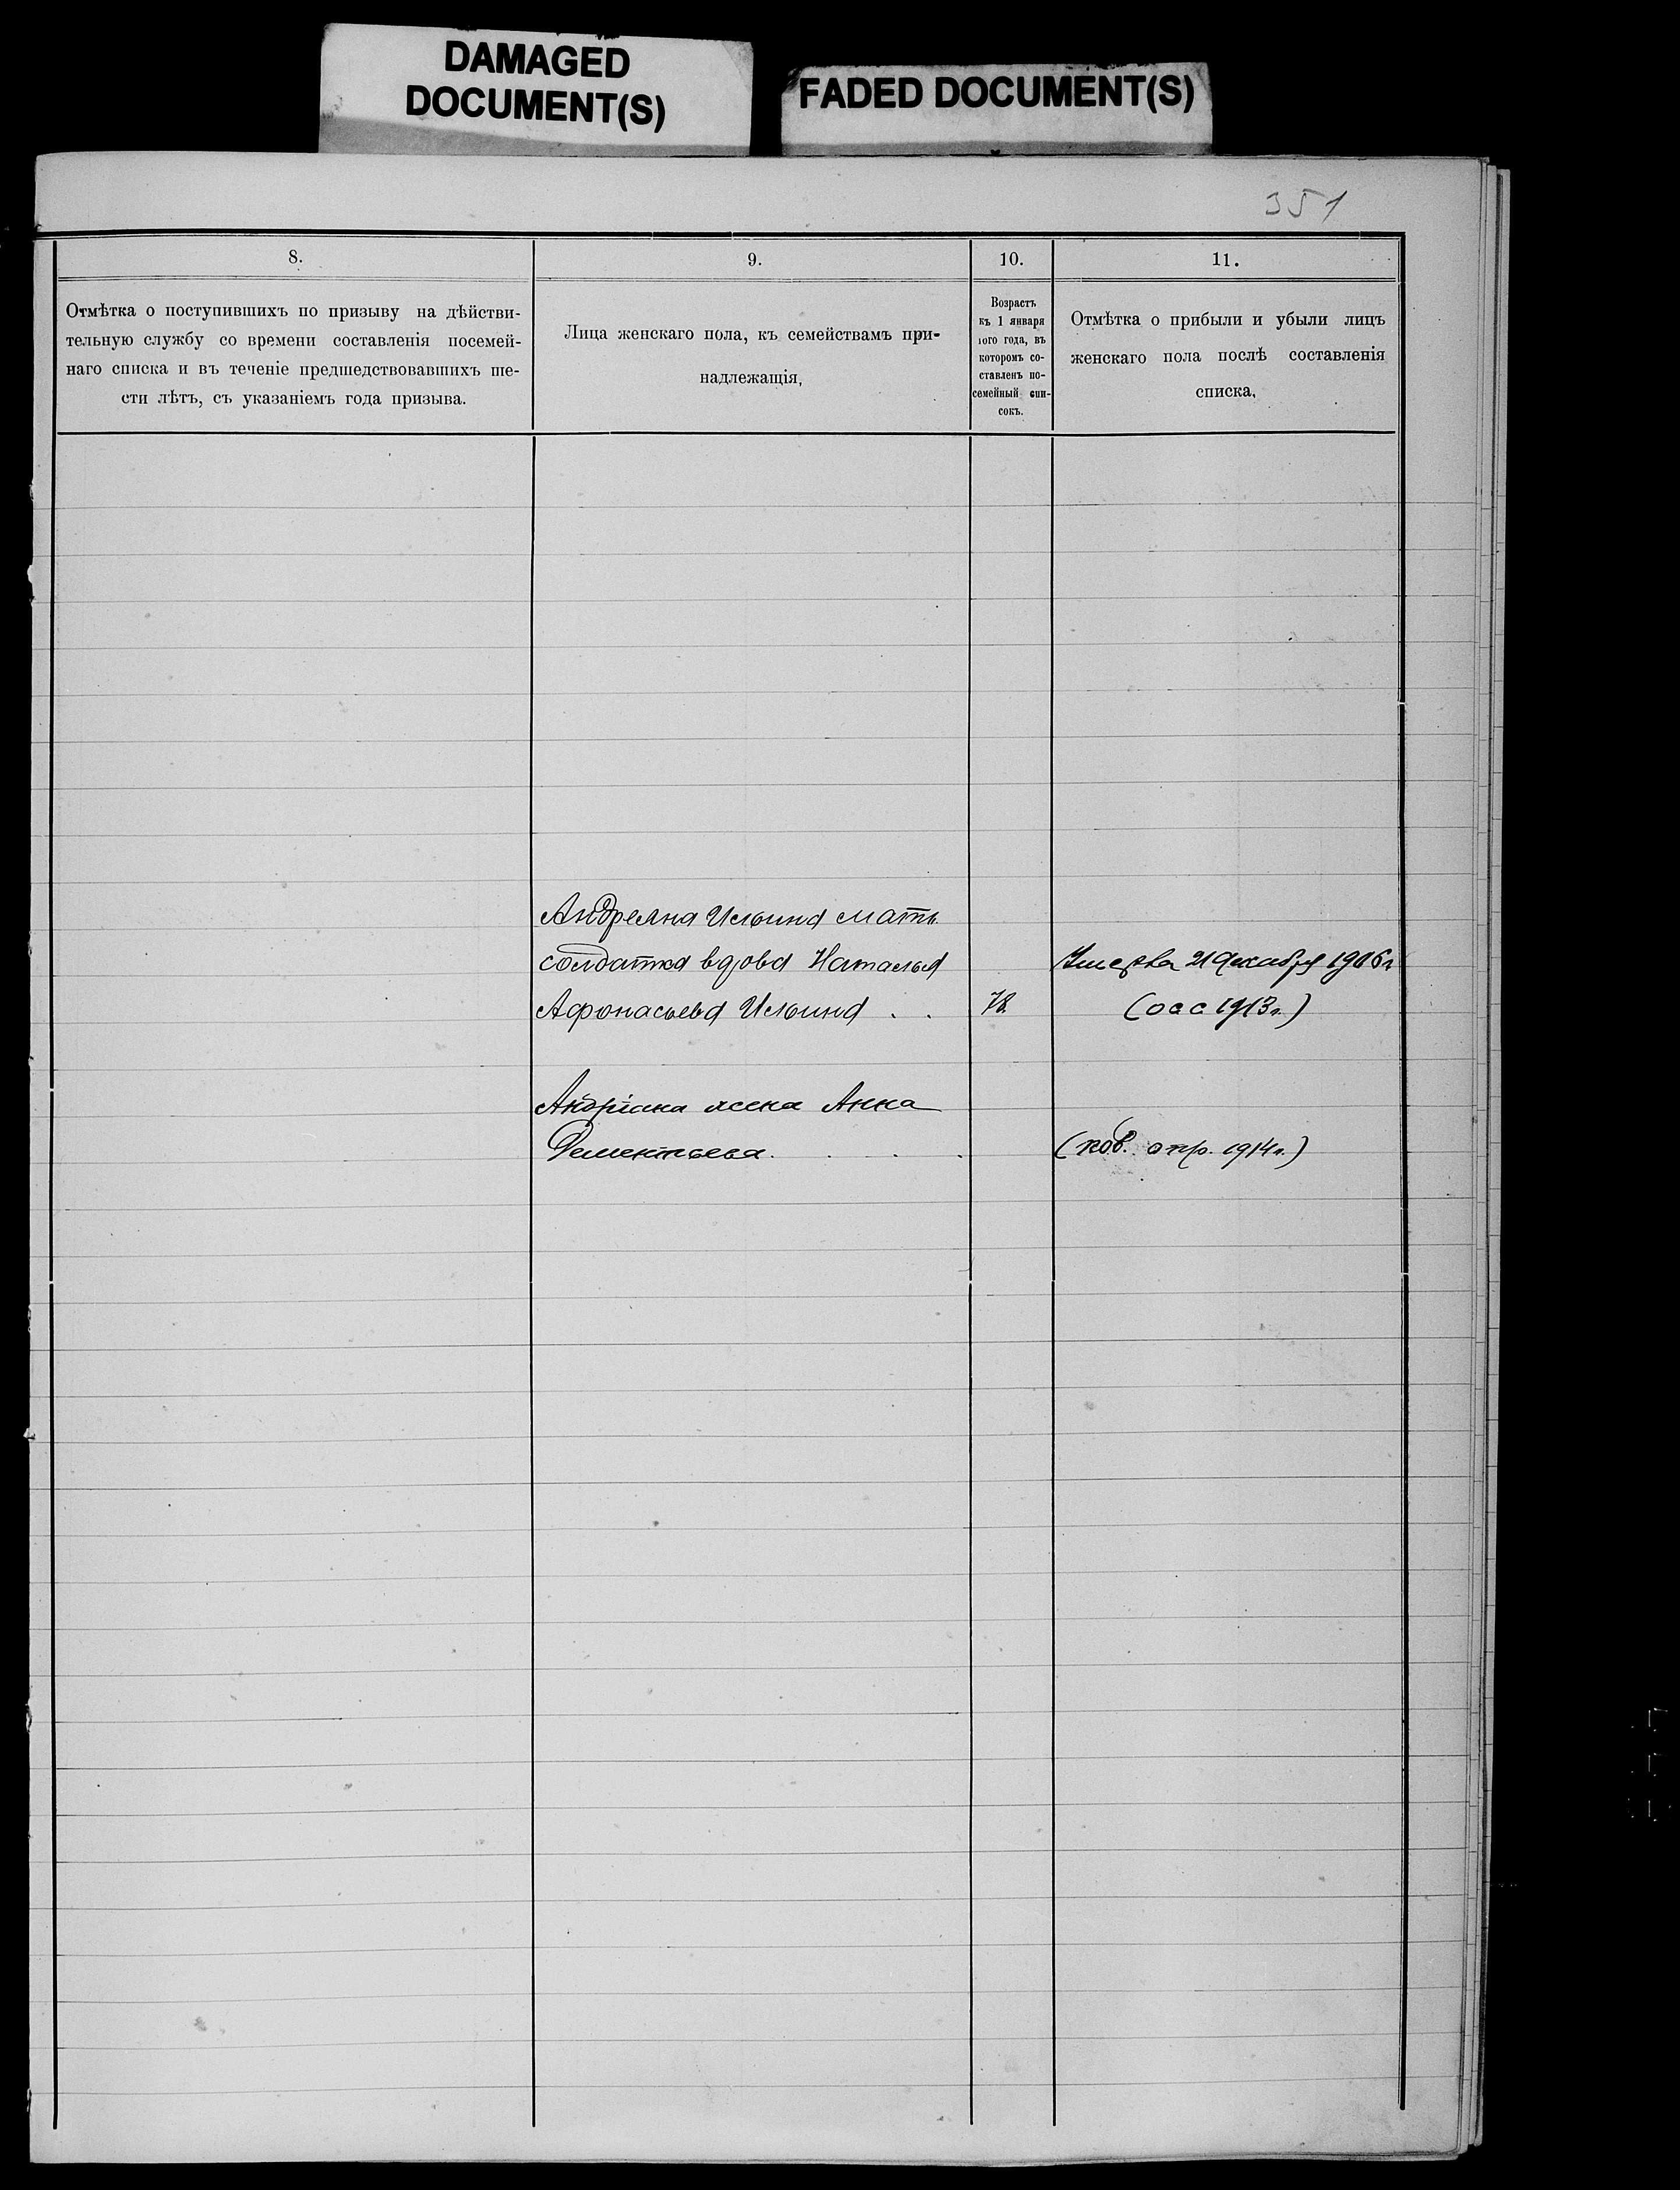 DAMAGED
DOCUMENT(S)
FADED DOCUMENT(S)
351
8.
9.
10.
11.
Отмѣтка о поступившихъ по призыву на дѣйстви-
тельную службу со времени составленія посемей-
наго списка и въ теченіе предшедствовавшихъ ше-
сти лѣтъ, съ указаніемъ года призыва.
Лица женскаго пола, къ семействамъ при-
надлежащія,
Возрастъ
къ 1 января
того года, въ
которомъ со-
ставленъ по-
семейный спи-
сокъ.
Отмѣтка о прибыли и убыли лицъ
женскаго пола послѣ составленія
списка.
Андреяна Ильина мать
солдатка вдова Наталья
Умерла 21 декабря 1906 г
Афонасьева Ильина . .
78.
1913 г.)
Андріана жена Анна
Дементьева. . . .
1914 г.)